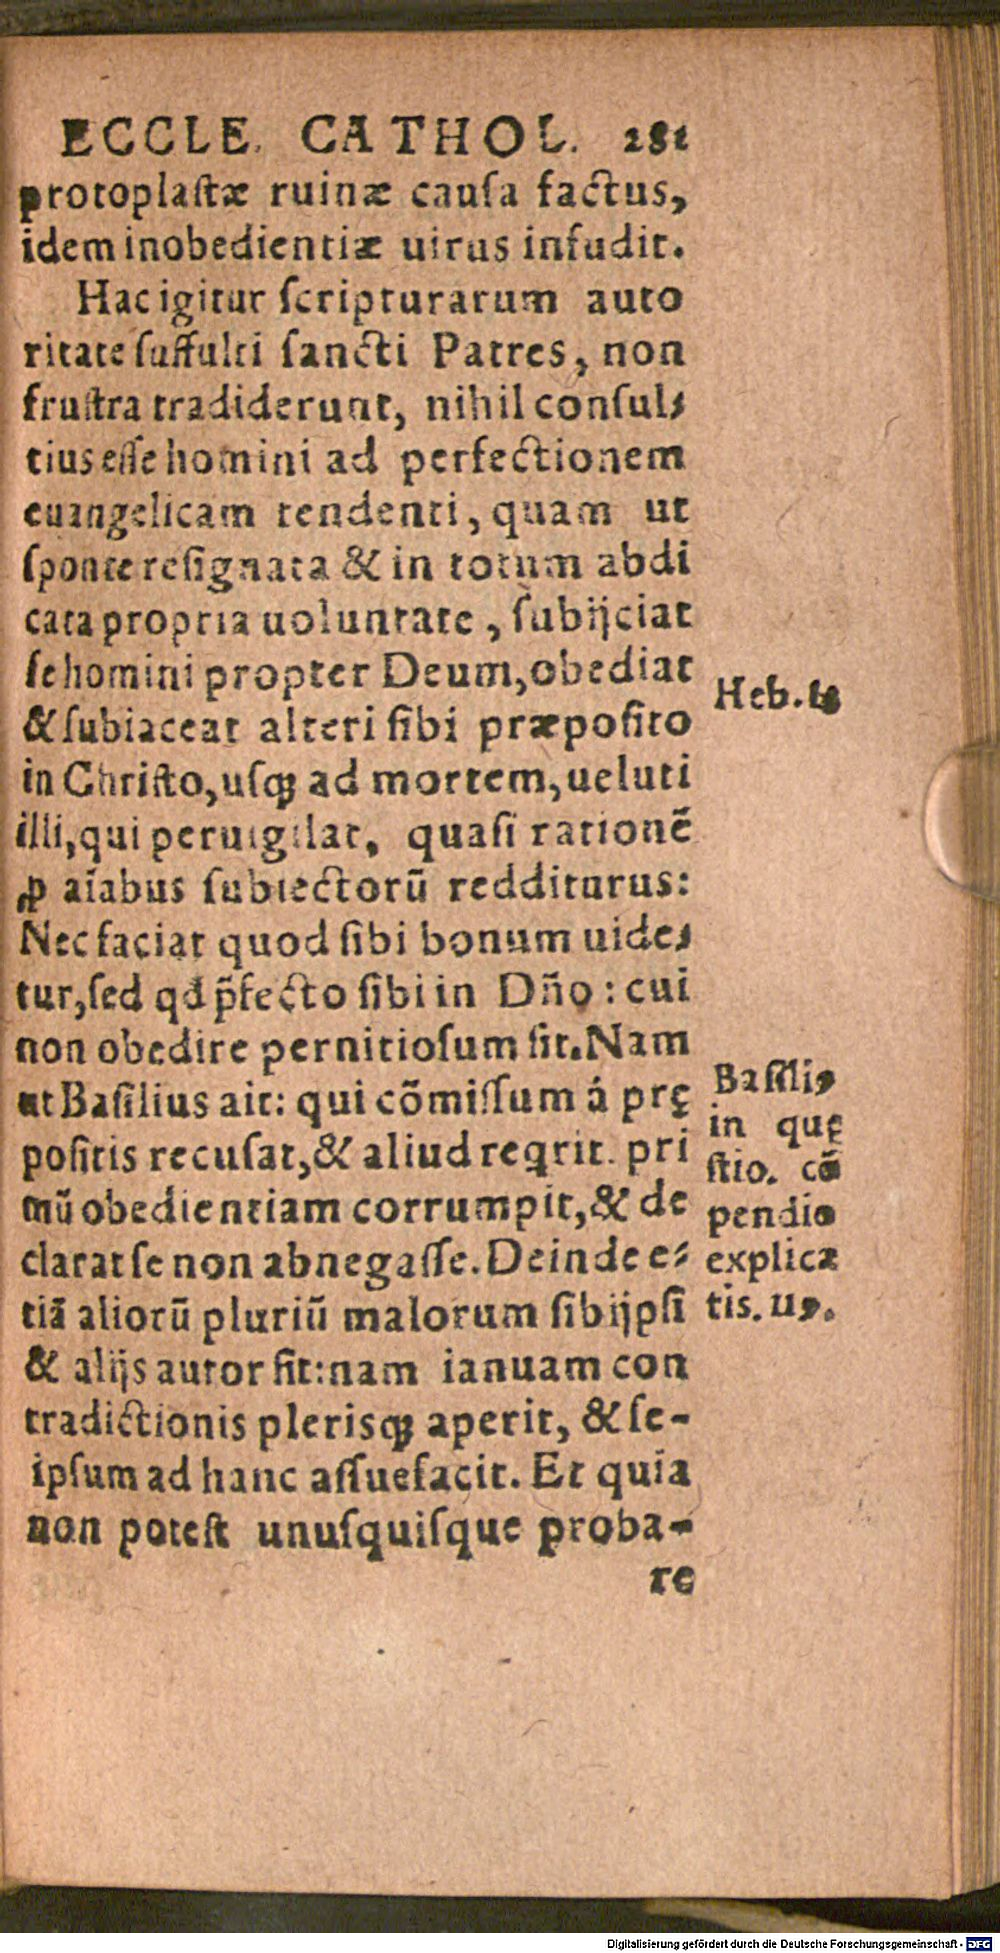 ECCLE. CATHOL. 281
protoplastæ ruinæ causa factus,
idem inobedientiæ uirus infudit.
Hac igitur scripturarum auto
ritate suffulti sancti Patres, non
frustra tradiderunt, nihil consul-
tius esse homini ad perfectionem
euangelicam tendenti, quam ut
sponte resignata & in totum abdi
cata propria uoluntate, subijciat
se homini propter Deum, obediat
Heb. 13
& subiaceat alteri sibi præposito
in Christo, usq́; ad mortem, ueluti
illi, qui peruigilat, quasi rationẽ
ꝓ aĩabus subiectorũ redditurus:
Nec faciat quod sibi bonum uide-
tur, sed qd p̃fecto sibi in Dño: cui
non obedire pernitiosum sit. Nam
ut Basilius ait: qui cõmissum á prę
positis recusat, & aliud reqrit. pri
mũ obedientiam corrumpit, & de
clarat se non abnegasse. Deinde e-
tiã aliorũ pluriũ malorum sibijpsi
& alijs autor fit: nam ianuam con
tradictionis plerisq́; aperit, & se-
ipsum ad hanc assuefacit. Et quia
non potest unusquisque proba-
re
Basili,
in quę
stio. cõ
pendio
explica
tis.
Digitalisierung gefördert durch die Deutsche Forschungsgemeinschaft - DFG